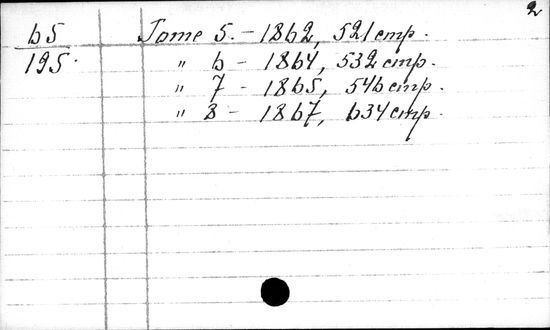 2
65 Tome 5. - 1862, 521 стр.
195. " 6 - 1864, 532 стр.
" 7 - 1865, 546 стр.
" 8 - 1867, 634 стр.